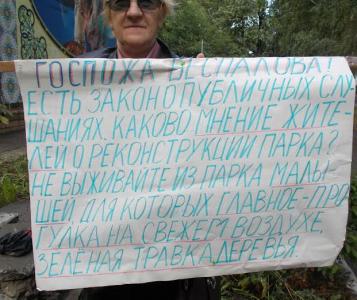 ГОСПОЖА БЕСПАЛОВА!
ЕСТЬ ЗАКОН О ПУБЛИЧНЫХ СЛУ-
ШАНИЯХ. КАКОВО МНЕНИЕ ЖИТЕ-
ЛЕЙ О РЕКОНСТРУКЦИИ ПАРКА?
НЕ ВЫЖИВАЙТЕ ИЗ ПАРКА МАЛЫ-
ШЕЙ ДЛЯ КОТОРЫХ ГЛАВНОЕ-ПРО-
ГУЛКА НА СВЕЖЕМ ВОЗДУХЕ,
ЗЕЛЁНАЯ ТРАВКА, ДЕРЕВЬЯ.